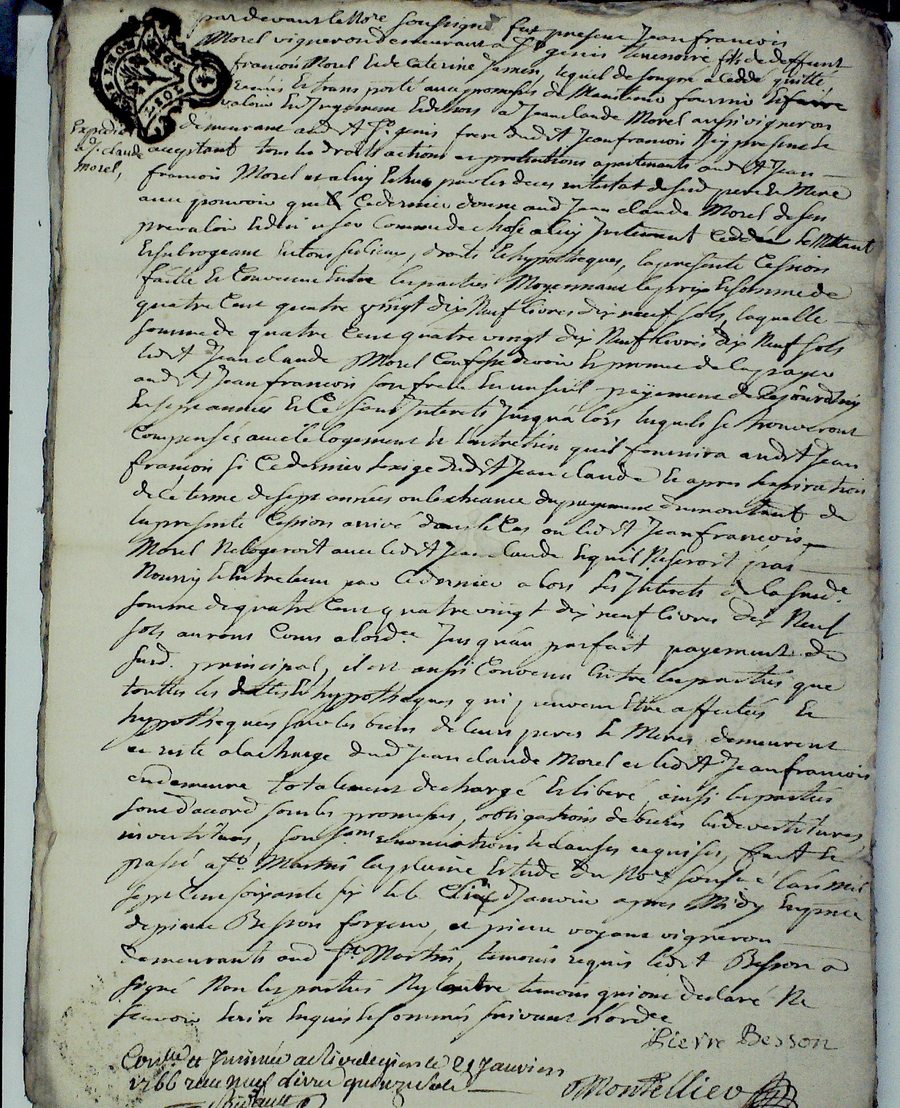 pardevant le No.re soussigné fut present Jean francois
Morel vigneron demeurant a St genis terrenoire fils de deffunt
francois Morel et de Caterine Jamen, lequel de son gré a cedé quitté
remis et transporté aux promesses de Maintenir fournir et faire
valoir en Jugement et dehors a Jean claude Morel aussi vigneron
demeurant aud.t St. genis frere dud.t Jean francois icy present et
acceptant tous les droits actions et pretentions apartenants aud.t Jean
francois Morel et a luy Echus par les deces intestat de sus pere et Mere
aux pouvoir que Ce dernier donne aud Jean claude Morel de s'en
prevaloir Et d'en user Comme de chose a luy Justement Ceddée le Mettant
Et subrogeant En tous ses lieux, droits Et hypotheques, la presente Cession
faitte Et Convenue Entre les parties Moyennant le prix Et somme de
quatre Cent quatre vingt dix Neuf livres dix neuf sols, laquelle
somme de quatre Cent quatre vingt dix Neuf livres dix Neuf sols
led.t Jean claude Morel Confesse devoir Et promet de la payer
aud.t Jean francois son frere En un seul payement de ce jourdhuy
En sept années Et Ce sans Interets Jusqu'alors lesquels se trouveront
Compensés avec le logement Et l'entretien qu'il fournira aud.t Jean
francois si Ce dernier l'exige dud.t Jean claude Et apres l'expiration
de Ce terme de sept années ou l'echeance du payement du montant de
la presente Cession arrivé dans le Cas ou led.t Jean francois
Morel Ne logeroit avec led.t Jean claude Et qu'il Ne seroit pas
Nourry Et Entretenu par Ce dernier alors les Interets de la sus.de
somme de quatre Cent quatre vingt dix neuf livres dix Neuf
sols auront Cours a lord.re Jusqu'au parfait payement du
susd. principal, il est aussi Convenu Entre les parties que
touttes les dettes Et hypotheques qui peuvent Etre affectées Et
hypothequées sur les biens de leurs peres Et Meres demeurent
et reste a la charge dud.t Jean claude Morel et led.t Jean francois
en demeure totalement dechargé Et liberé, ainsi les parties
sont d'accord sous les promesses, obligations de biens
soumissions renonciations Et clauses requises, fait Et
passé a St. Martin la plaine Etude du No.re sous.né l'an Mil
sept Cent soixante six Et le Janvier apres Midy En presence
de pierre Besson forgeur, et pierre voyant vigneron
demeurants aud St. Martin, temoins requis led.t Besson a
signé Non les parties Ny l'autre temoins qui ont declaré Ne
scavoir Ecrire Enquis Et sommés suivant l'ord.ce
Pierre Besson
Con.lé et Jnsinué a Rivedegier le 21 Janvier
1766 reçu neuf livres quinze sols
Montellier
Expedié
a Jn. claude
Morel,